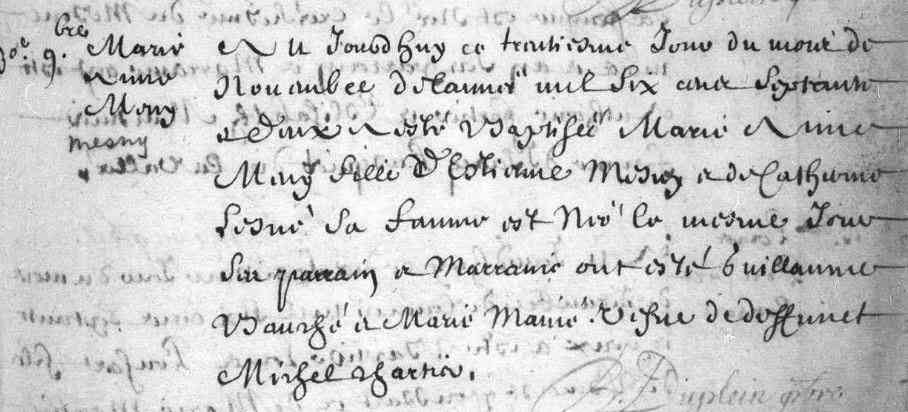 30e 9.bre Marie
Anne
Meny
mesny
Au Jourdhuy ce trentiesme Jour du mois de
Nouembre de lannee mil Six cens Septante
et deux A esté Baptisee Marie Anne
Meny fille d'Estienne Mesny et de Catherine
Lesné Sa famme est Née le mesme Jour
Son parrain et Marraine ont esté Guillaume
Vauché et Marie Manié vefue de deffunct
Michel Chartier.
Duplein ptre